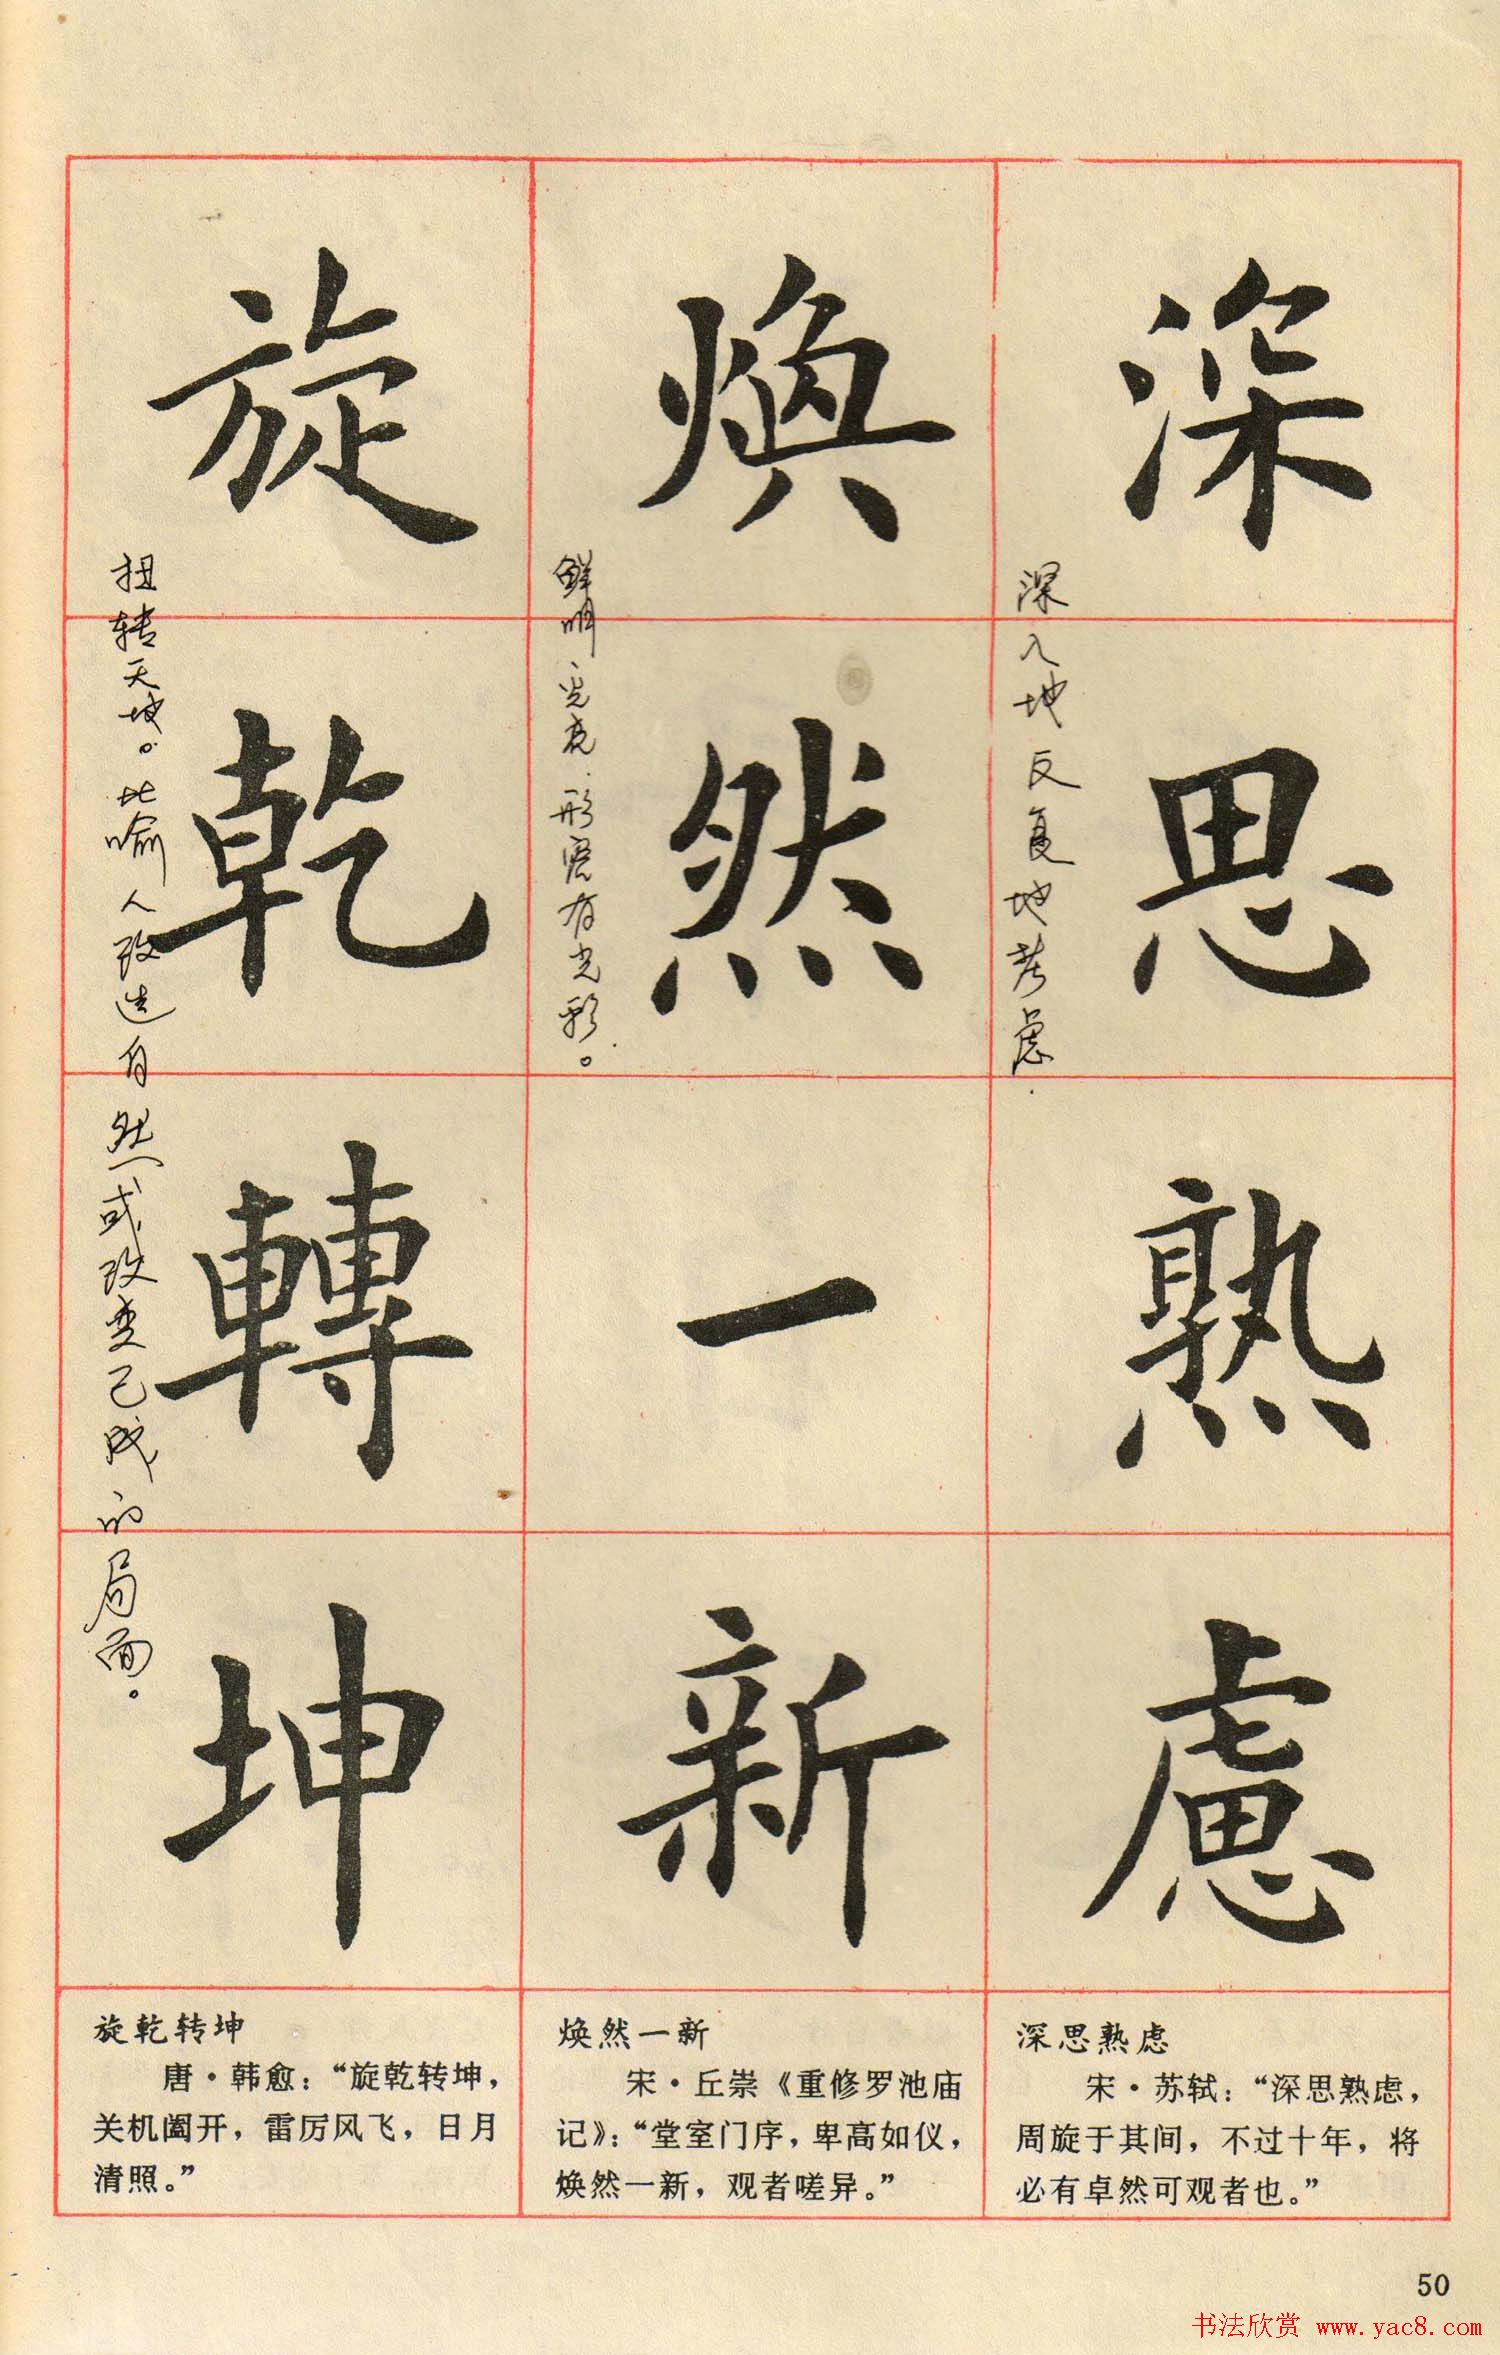 深思熟慮
深入地反复地考虑.
煥然一新
鲜明、光亮.形容有光彩。
旋乾轉坤
扭转天地。比喻人改造自然或改变已成的局面。
深思熟虑
宋·苏轼：“深思熟虑，
周旋于其间，不过十年，将
必有卓然可观者也。”
焕然一新
宋·丘崇《重修罗池庙
记》：“堂室门序，卑高如仪，
焕然一新，观者嗟异。”
旋乾转坤
唐·韩愈：“旋乾转坤，
关机阖开，雷厉风飞，日月
清照。”
50
书法欣赏 www.yac8.com